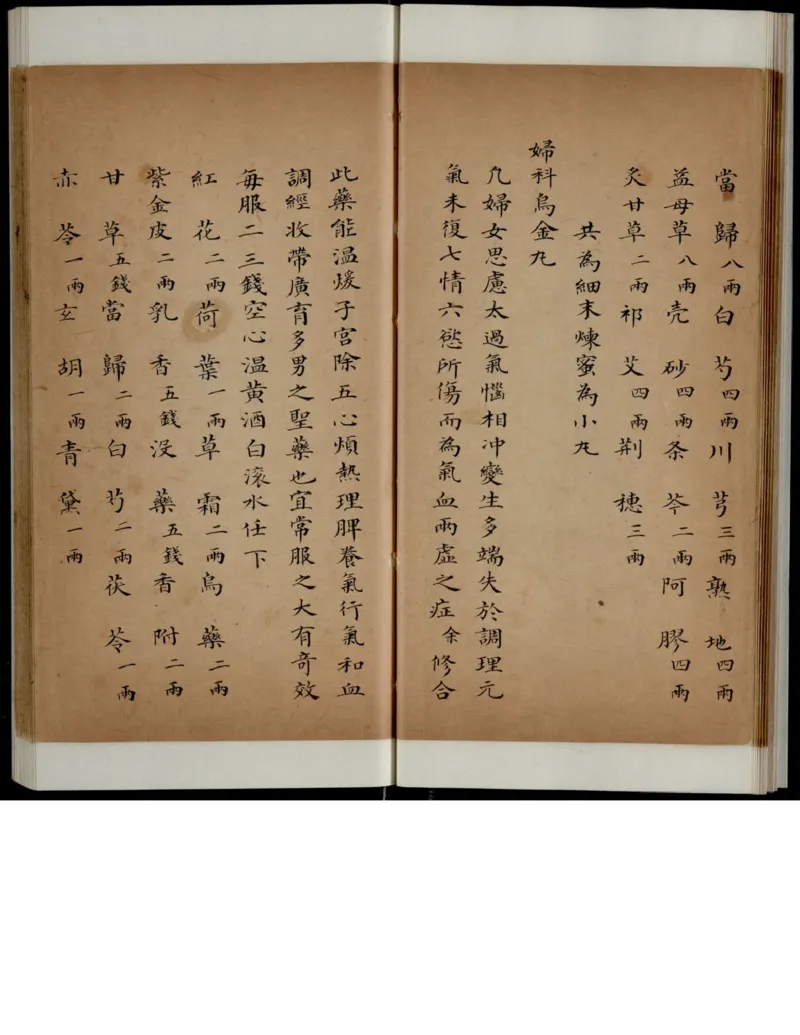 當歸八兩白芍四兩川芎三兩熟地四兩
益母草八兩壳砂四兩条芩二兩阿膠四兩
炙甘草二兩祁艾四兩荆穗三兩
共為細末煉蜜為小丸
婦科烏金丸
凢婦女思慮太過氣惱相冲變生多端失於調理元
氣未復七情六慾所傷而為氣血兩虛之症余修合
此藥能温煖子宮除五心煩熱理脾養氣行氣和血
調經收帶廣育多男之聖藥也宜常服之大有奇效
每服二三錢空心温黄酒白滚水任下
紅花二兩荷葉一兩草霜二兩烏藥二兩
紫金皮二兩乳香五錢没藥五錢香附二兩
甘草五錢當歸二兩白芍二兩茯苓一兩
赤苓一兩玄胡一兩青黛一兩